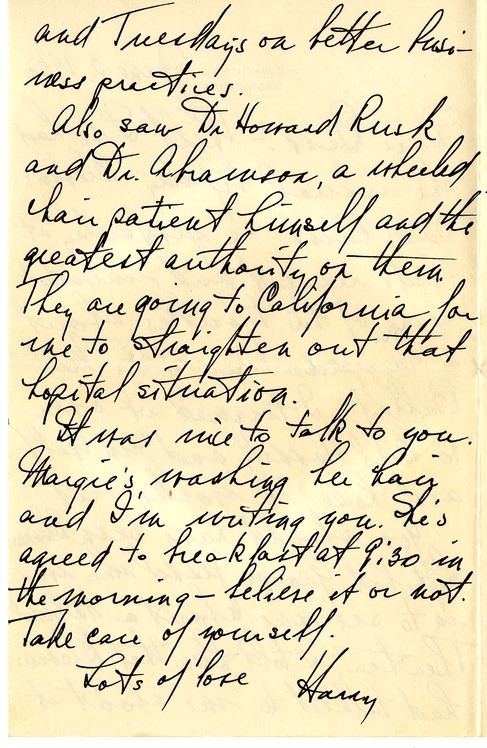 and Tuesdays on better busi-
ness practices.
Also saw Dr Howard Rusk
and Dr. Abramson, a wheeled
chair patient himself and the
greatest authority on them.
They are going to California for
me to straighten out that
hopital situation.
It was nice to talk to you.
Margie's washing her hair
and I'm writing you. She's
agreed to breakfast at 9:30 in
the morning - believe it or not.
Take care of yourself.
Lots of love Harry